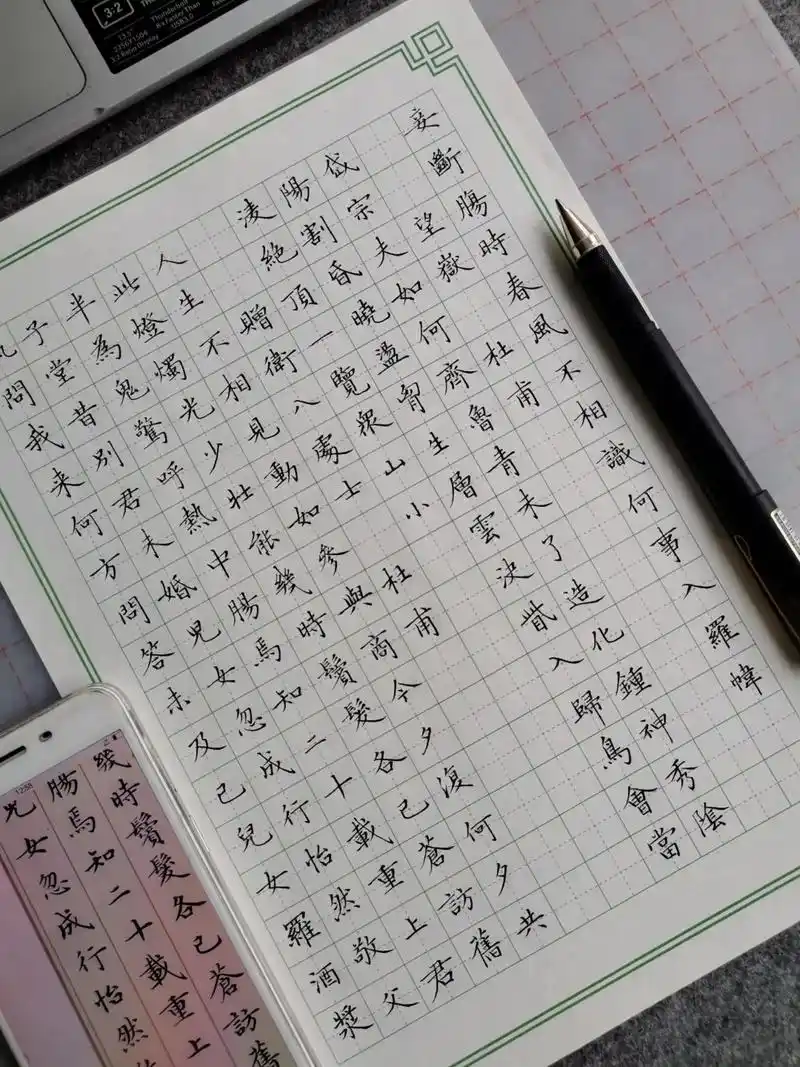 妾斷腸時春風不相識何事入羅幃
望嶽 杜甫
岱宗夫如何齊魯青未了造化鍾神秀陰
陽割昏曉盪胷生層雲決眥入歸鳥會當
淩絕頂一覽眾山小
贈衛八處士 杜甫
人生不相見動如參與商今夕復何夕共
此燈燭光少壯能幾時鬢髮各已蒼訪舊
半為鬼驚呼熱中腸焉知二十載重上君
子堂昔別君未婚兒女忽成行怡然敬父
問我来何方問答未及已兒女羅酒漿
幾時鬢髮各已蒼訪舊
腸焉知二十載重上
兒女忽成行怡然
3:2
Thunderbolt
8x Faster Than
USB3.0
3:2 Ratio Display